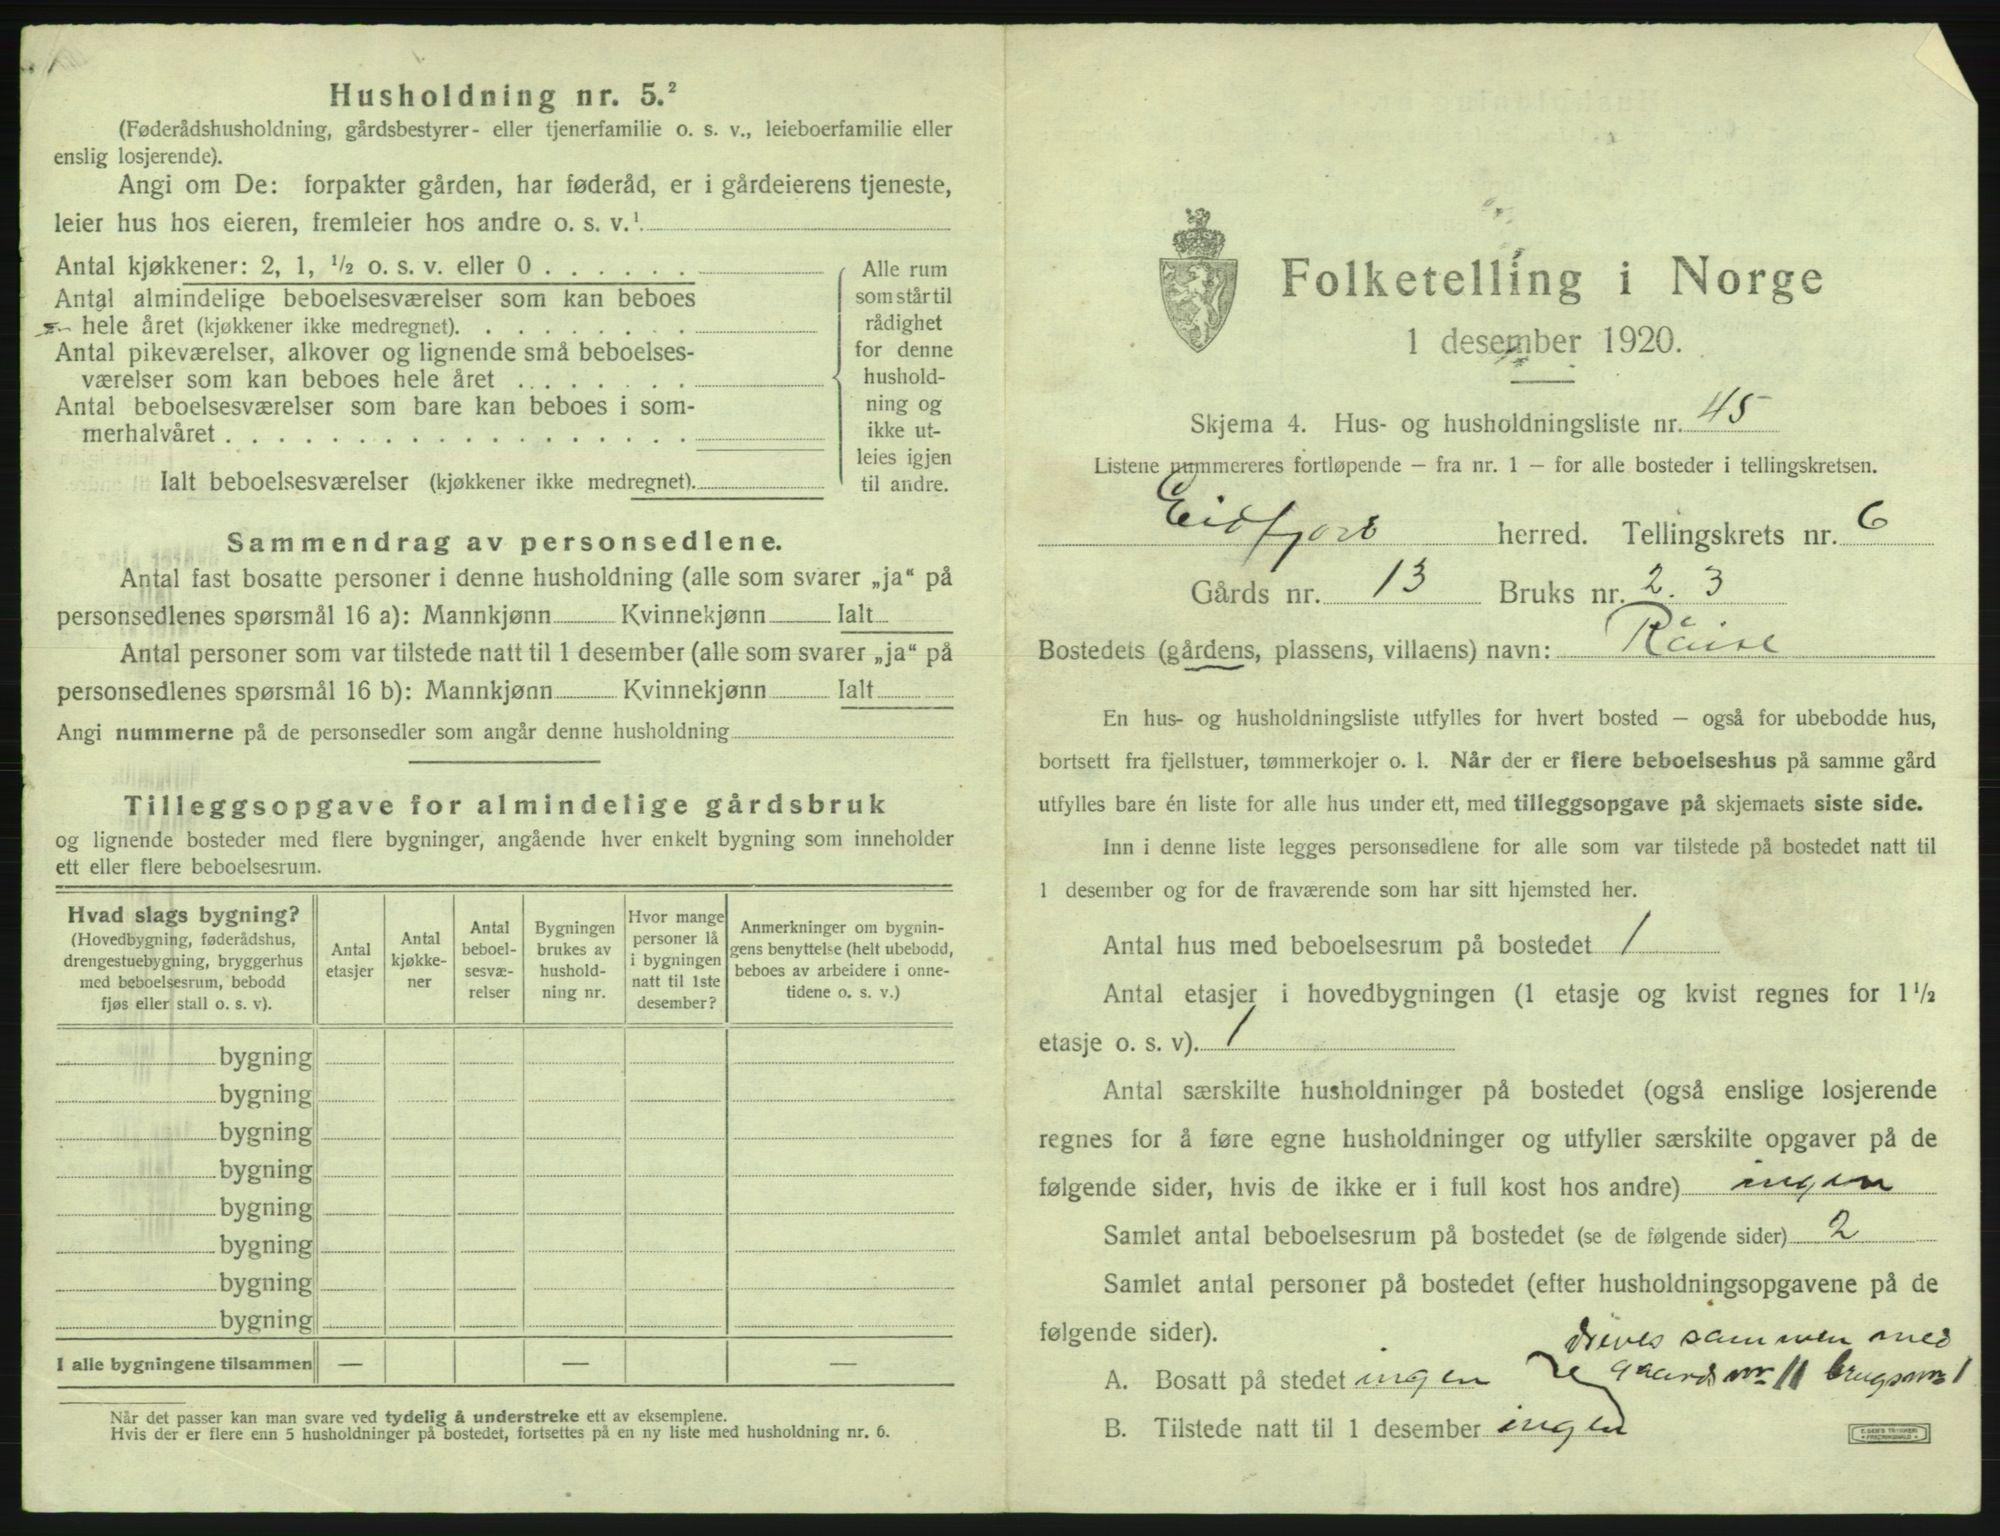 Husholdning nr. 5.²
(Føderådshusholdning, gårdsbestyrer- eller tjenerfamilie o. s. v., leieboerfamilie eller
enslig losjerende).
Angi om De: forpakter gården, har føderåd, er i gårdeierens tjeneste,
leier hus hos eieren, fremleier hos andre o. s. v.¹
Antal kjøkkener: 2, 1, ½ o. s. v. eller 0 . . . . . .
Antal almindelige beboelsesværelser som kan beboes
hele året (kjøkkener ikke medregnet). . . . . . . . .
Antal pikeværelser, alkover og lignende små beboelses-
værelser som kan beboes hele året . . . . . . . .
Antal beboelsesværelser som bare kan beboes i som-
merhalvåret . . . . . . . . . . . . . . . . . .
Ialt beboelsesværelser (kjøkkener ikke medregnet).
Alle rum
som står til
rådighet
for denne
hushold-
ning og
ikke ut-
leies igjen
til andre.
Sammendrag av personsedlene.
Antal fast bosatte personer i denne husholdning (alle som svarer „ja“ på
personsedlenes spørsmål 16 a): Mannkjønn Kvinnekjønn Ialt
Antal personer som var tilstede natt til 1 desember (alle som svarer „ja“ på
personsedlenes spørsmål 16 b): Mannkjønn Kvinnekjønn Ialt
Angi nummerne på de personsedler som angår denne husholdning
Tilleggsopgave for almindelige gårdsbruk
og lignende bosteder med flere bygninger, angående hver enkelt bygning som inneholder
ett eller flere beboelsesrum.
Hvad slags bygning?
(Hovedbygning, føderådshus,
drengestuebygning, bryggerhus
med beboelsesrum, bebodd
fjøs eller stall o. s. v).
Antal
etasjer
Antal
kjøkke-
ner
Antal
beboel-
sesvæ-
relser
Bygningen
brukes av
hushold-
ning nr.
Hvor mange
personer lå
i bygningen
natt til 1ste
desember?
Anmerkninger om bygnin-
gens benyttelse (helt ubebodd,
beboes av arbeidere i onne-
tidene o. s. v.)
bygning
bygning
bygning
bygning
bygning
bygning
bygning
bygning
I alle bygningene tilsammen — — —
Når det passer kan man svare ved tydelig å understreke ett av eksemplene.
Hvis der er flere enn 5 husholdninger på bostedet, fortsettes på en ny liste med husholdning nr. 6.
Folketelling i Norge
1 desember 1920.
Skjema 4. Hus- og husholdningsliste nr. 45
Listene nummereres fortløpende – fra nr. 1 – for alle bosteder i tellingskretsen.
Eidfjord herred. Tellingskrets nr. 6
Gårds nr. 13 Bruks nr. 2. 3
Bostedets (gårdens, plassens, villaens) navn:
En hus- og husholdningsliste utfylles for hvert bosted – også for ubebodde hus,
bortsett fra fjellstuer, tømmerkojer o. l. Når der er flere beboelseshus på samme gård
utfylles bare én liste for alle hus under ett, med tilleggsopgave på skjemaets siste side.
Inn i denne liste legges personsedlene for alle som var tilstede på bostedet natt til
1 desember og for de fraværende som har sitt hjemsted her.
Antal hus med beboelsesrum på bostedet 1
Antal etasjer i hovedbygningen (1 etasje og kvist regnes for 1½
etasje o. s. v). 1
Antal særskilte husholdninger på bostedet (også enslige losjerende
regnes for å føre egne husholdninger og utfyller særskilte opgaver på de
følgende sider, hvis de ikke er i full kost hos andre) ingen
Samlet antal beboelsesrum på bostedet (se de følgende sider) 2
Samlet antal personer på bostedet (efter husholdningsopgavene på de
følgende sider).
drives sammen med
A. Bosatt på stedet ingen gaards nr 11 brugsnr 1
B. Tilstede natt til 1 desember ingen